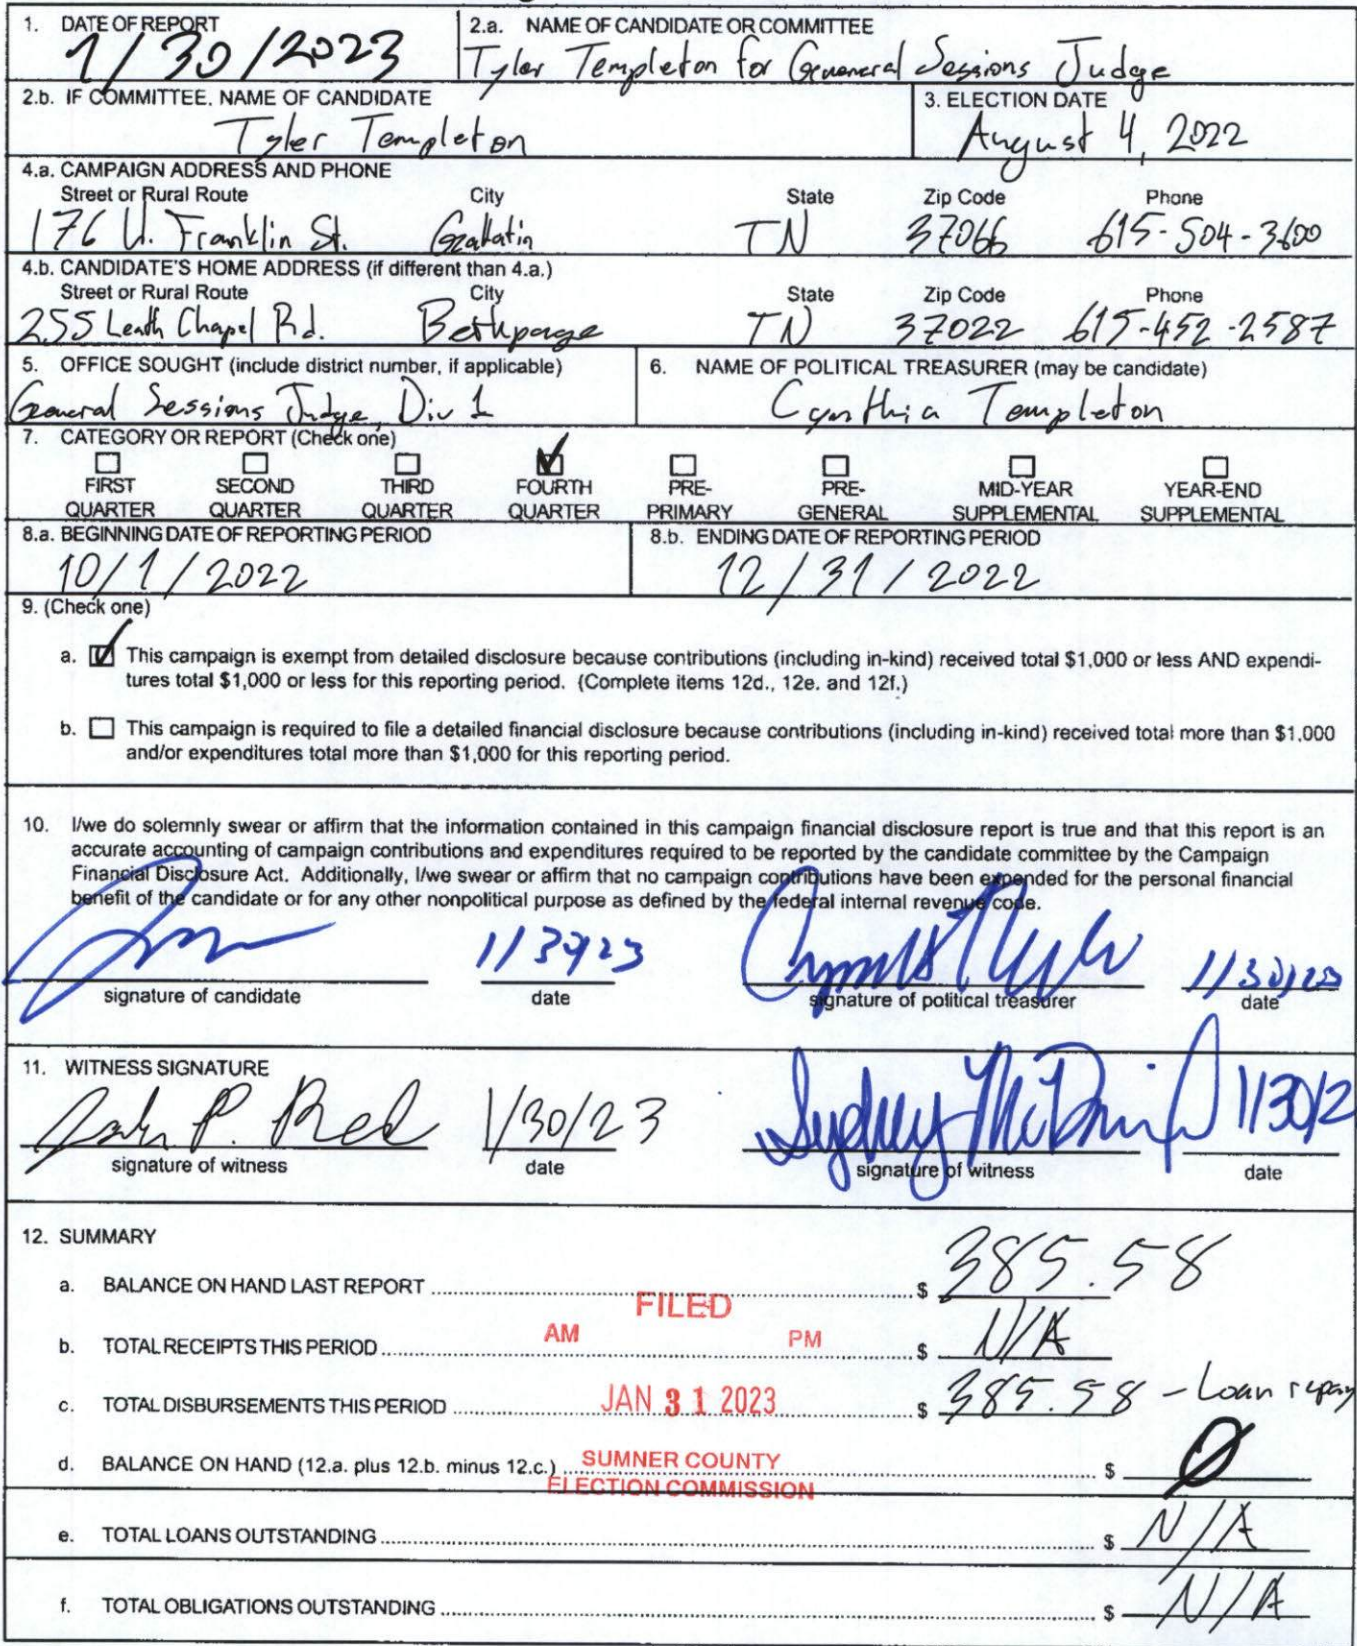 1. DATE OF REPORT
1/30/2023
2.a. NAME OF CANDIDATE OR COMMITTEE
Tyler Templeton for Geueneral Sessions Judge
2.b. IF COMMITTEE, NAME OF CANDIDATE
Tyler Templeton
3. ELECTION DATE
August 4, 2022
4.a. CAMPAIGN ADDRESS AND PHONE
Street or Rural Route City State Zip Code Phone
176 W. Franklin St. Gallatin TN 37066 615-504-3600
4.b. CANDIDATE'S HOME ADDRESS (if different than 4.a.)
Street or Rural Route City State Zip Code Phone
255 Leath Chapel Rd. Bethpage TN 37022 615-452-2587
5. OFFICE SOUGHT (include district number, if applicable)
General Sessions Judge, Div 1
6. NAME OF POLITICAL TREASURER (may be candidate)
Cynthia Templeton
7. CATEGORY OR REPORT (Check one)
FIRST QUARTER
SECOND QUARTER
THIRD QUARTER
FOURTH QUARTER
PRE-PRIMARY
PRE-GENERAL
MID-YEAR SUPPLEMENTAL
YEAR-END SUPPLEMENTAL
8.a. BEGINNING DATE OF REPORTING PERIOD
10/1/2022
8.b. ENDING DATE OF REPORTING PERIOD
12/31/2022
9. (Check one)
a. This campaign is exempt from detailed disclosure because contributions (including in-kind) received total $1,000 or less AND expendi-
tures total $1,000 or less for this reporting period. (Complete items 12d., 12e. and 12f.)
b. This campaign is required to file a detailed financial disclosure because contributions (including in-kind) received total more than $1,000
and/or expenditures total more than $1,000 for this reporting period.
10. I/we do solemnly swear or affirm that the information contained in this campaign financial disclosure report is true and that this report is an
accurate accounting of campaign contributions and expenditures required to be reported by the candidate committee by the Campaign
Financial Disclosure Act. Additionally, I/we swear or affirm that no campaign contributions have been expended for the personal financial
benefit of the candidate or for any other nonpolitical purpose as defined by the federal internal revenue code.
1/30/23 1/30/23
signature of candidate date signature of political treasurer date
11. WITNESS SIGNATURE
1/30/23 Sydney 1/30/2
signature of witness date signature of witness date
12. SUMMARY
a. BALANCE ON HAND LAST REPORT $ 385.58
FILED
AM PM
b. TOTAL RECEIPTS THIS PERIOD $ N/A
c. TOTAL DISBURSEMENTS THIS PERIOD $ 385.58 - Loan repay
JAN 31 2023
d. BALANCE ON HAND (12.a. plus 12.b. minus 12.c.) $ 0
SUMNER COUNTY
ELECTION COMMISSION
e. TOTAL LOANS OUTSTANDING $ N/A
f. TOTAL OBLIGATIONS OUTSTANDING $ N/A